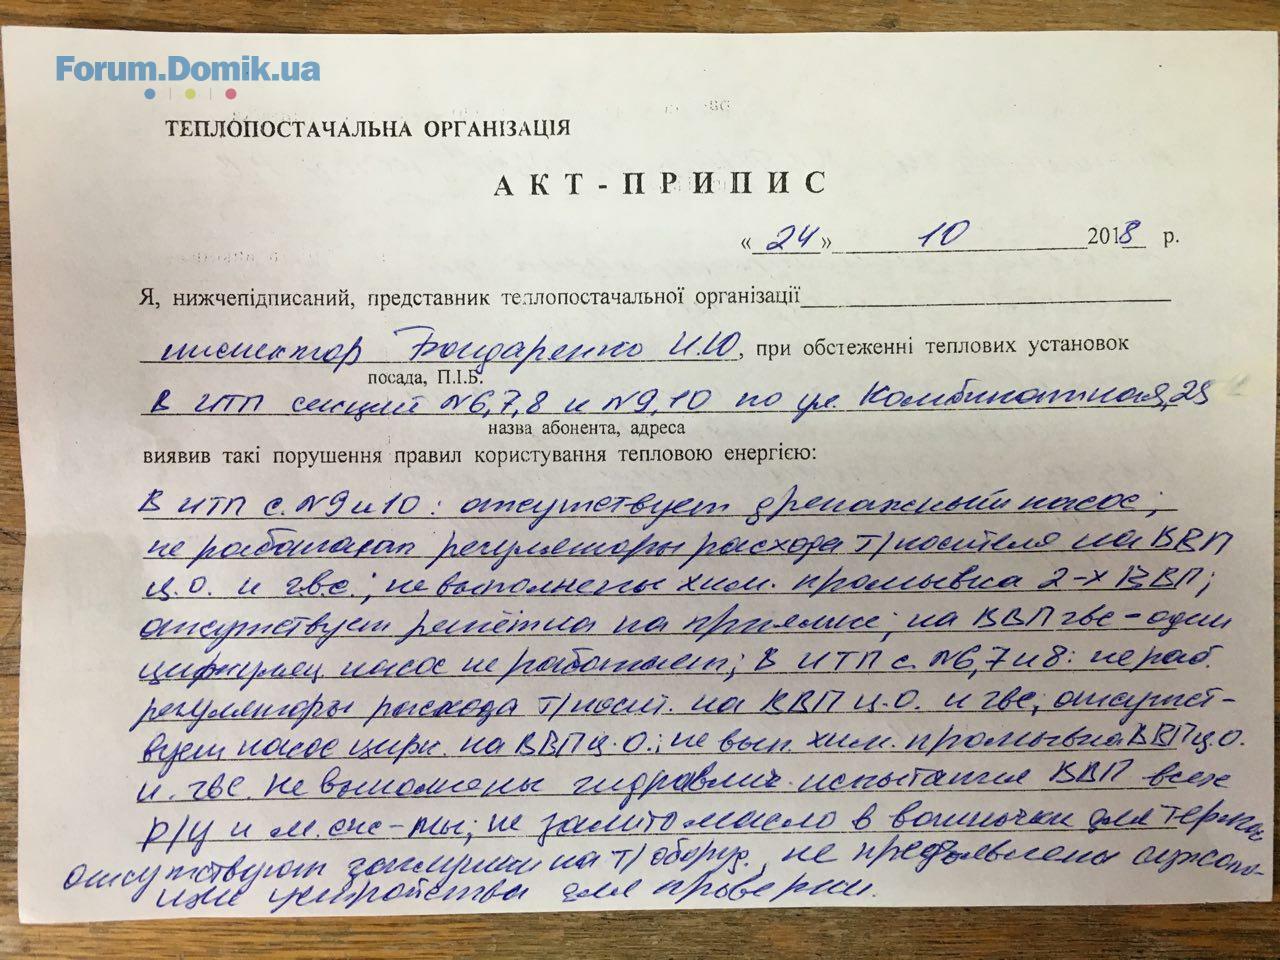 Forum.Domik.ua
ТЕПЛОПОСТАЧАЛЬНА ОРГАНІЗАЦІЯ
АКТ-ПРИПИС
« 24 » 10 2018 р.
Я, нижчепідписаний, представник теплопостачальної організації
инспектор Бондаренко И.Ю, при обстеженні теплових установок
посада, П.І.Б.
В ИТП секций №6,7,8 и №9,10 по ул. Комбинатная, 25
назва абонента, адреса
виявив такі порушення правил користування тепловою енергією:
В ИТП с. №9 и 10: отсутствует дренажный насос;
не работают регуляторы расхода т/носителя на ВВП
ц.о. и гвс; не выполнены хим. промывка 2-х ВВП;
отсутствует решётка на приямке; на ВВП гвс - один
циркуляц насос не работает; В ИТП с. №6,7 и 8: не раб.
регуляторы расхода т/носит. на ВВП ц.о. и гвс; отсутст-
вует насос цирк. на ВВП ц.о.; не вып. хим. промывка ВВП ц.о.
и гвс. Не выполнены гидравлич. испытания ВВП всех
р/ц и м. сис-мы; не залито масло в для термом
отсутствуют на т/оборуд., не предъявлена
щие устройства для проверки.